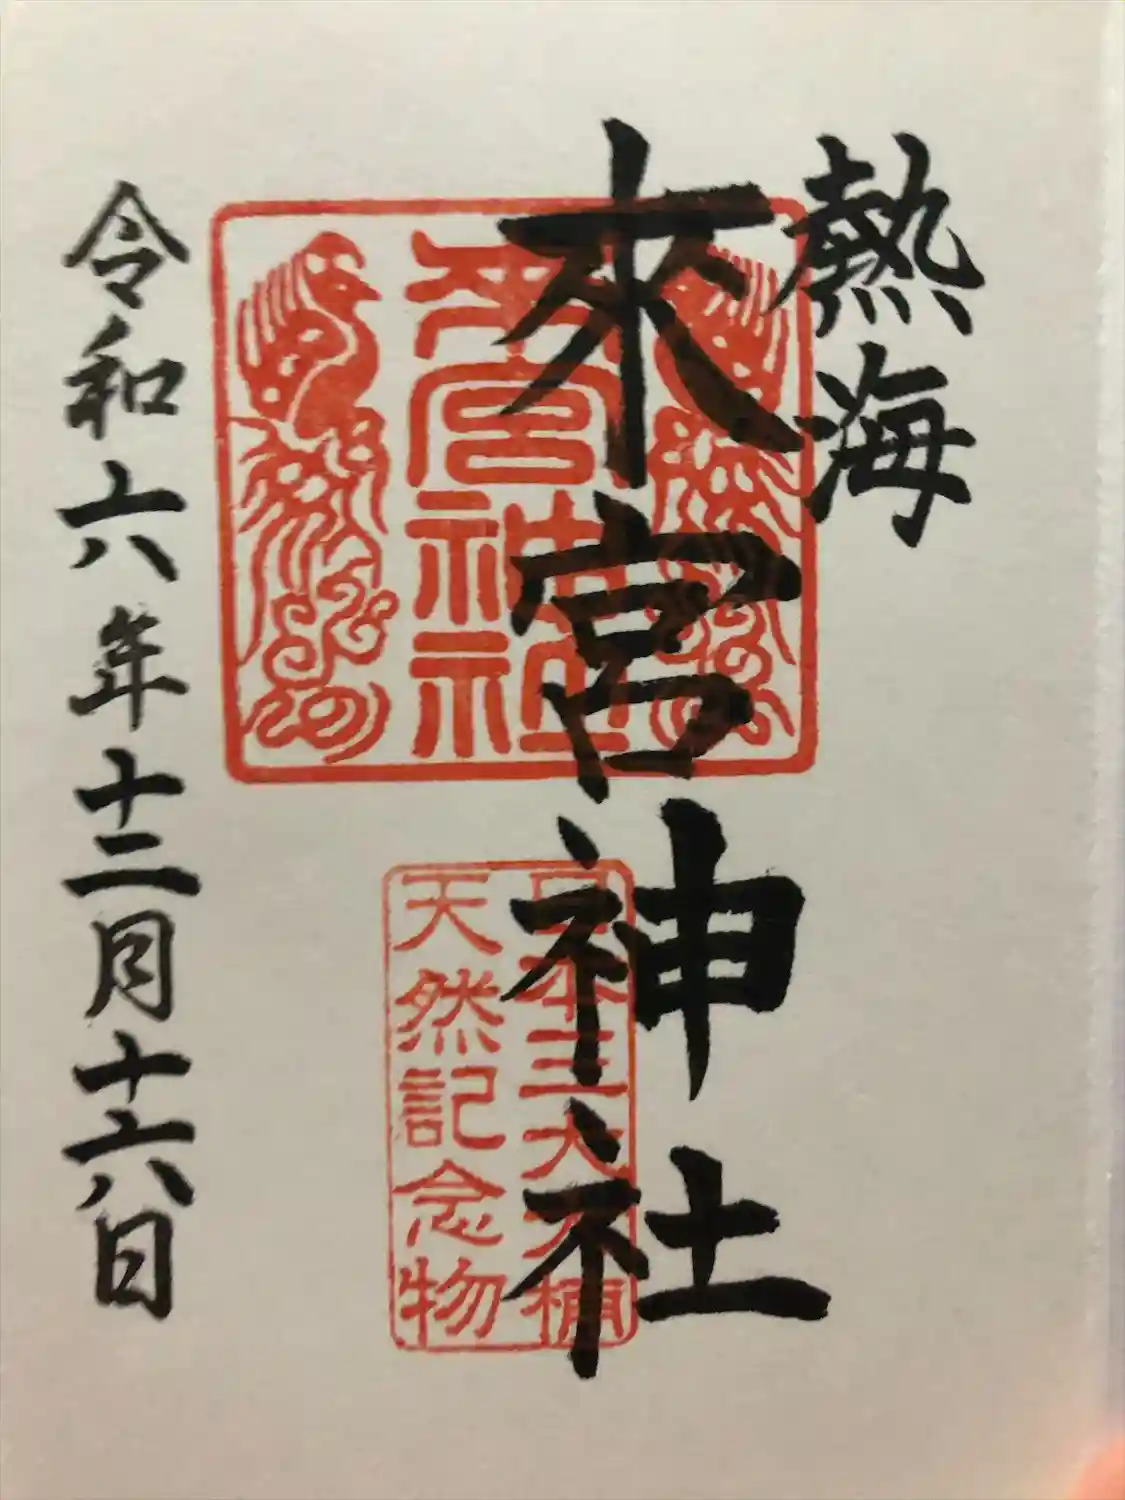 熱海
來宮神社
來宮神社
日本三大大楠
天然記念物
令和六年十二月十六日